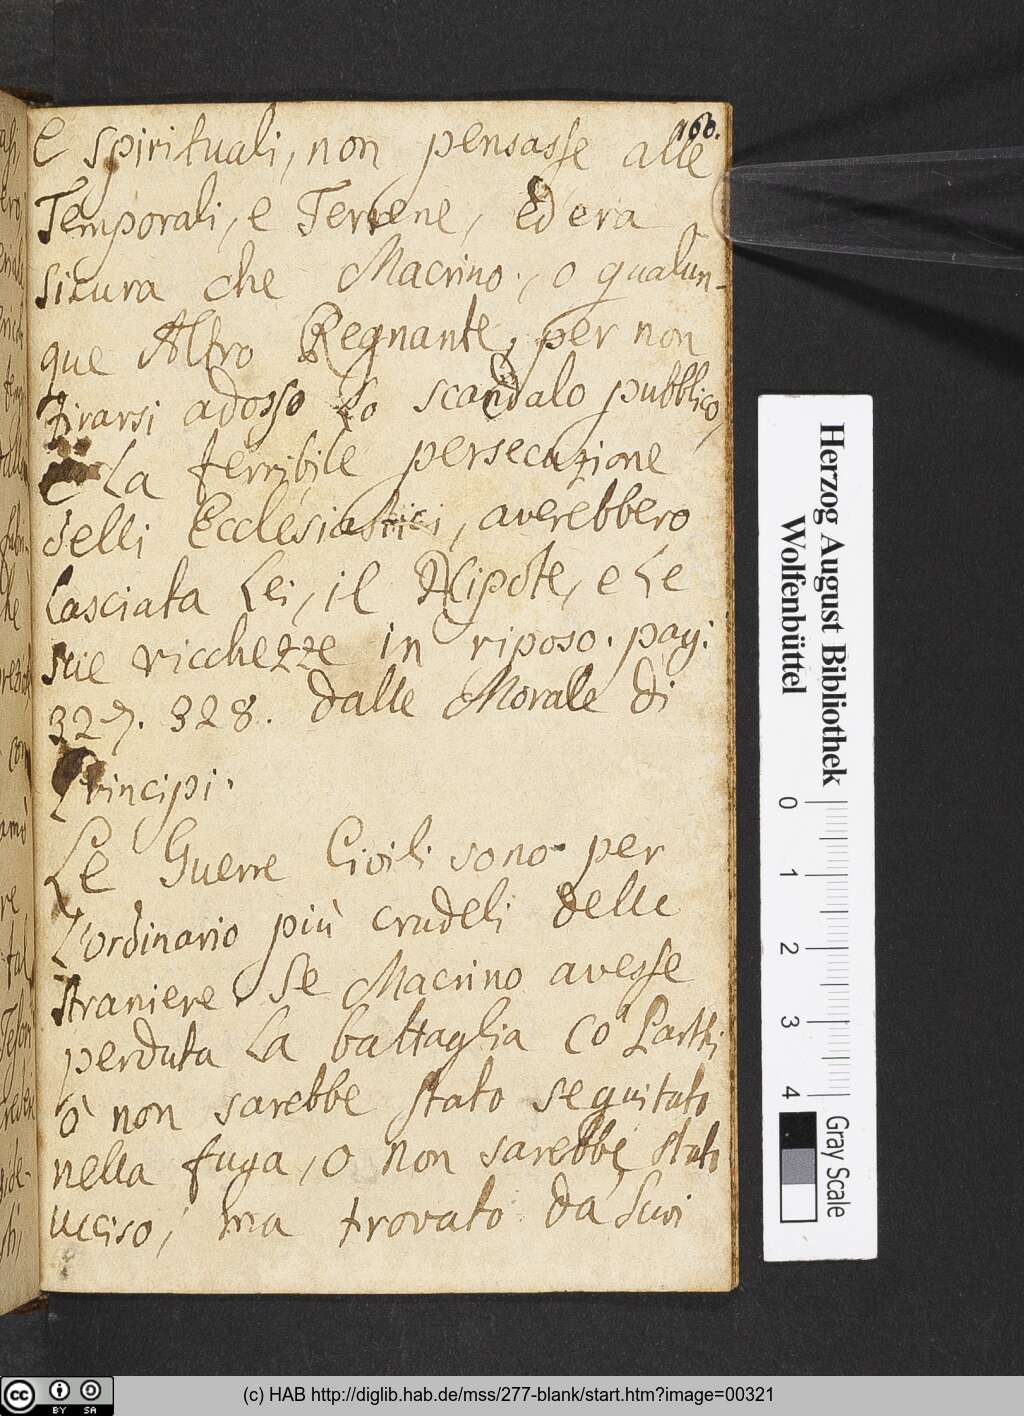 160.
e spirituali, non pensasse alle
Temporali, e Terrene, ed era
sicura che Macrino, o qualun-
que Altro Regnante, per non
tirarsi adosso lo scandalo pubblico,
e la terribile persecuzione
delli Ecclesiastici, averebbero
lasciata Lei, il Nipote, e le
sue ricchezze in riposo. pag:
327. 328. dalle Morale di
Principi.
Le Guerre Civili sono per
l'ordinario più crudeli delle
straniere. Se Macrino avesse
perduta la battaglia co' Parthi
ò non sarebbe stato seguitato
nella fuga, o non sarebbe stato
ucciso; ma trovato da suoi
Herzog August Bibliothek
Wolfenbüttel
0 1 2 3 4
Gray Scale
(c) HAB http://diglib.hab.de/mss/277-blank/start.htm?image=00321
cc BY SA